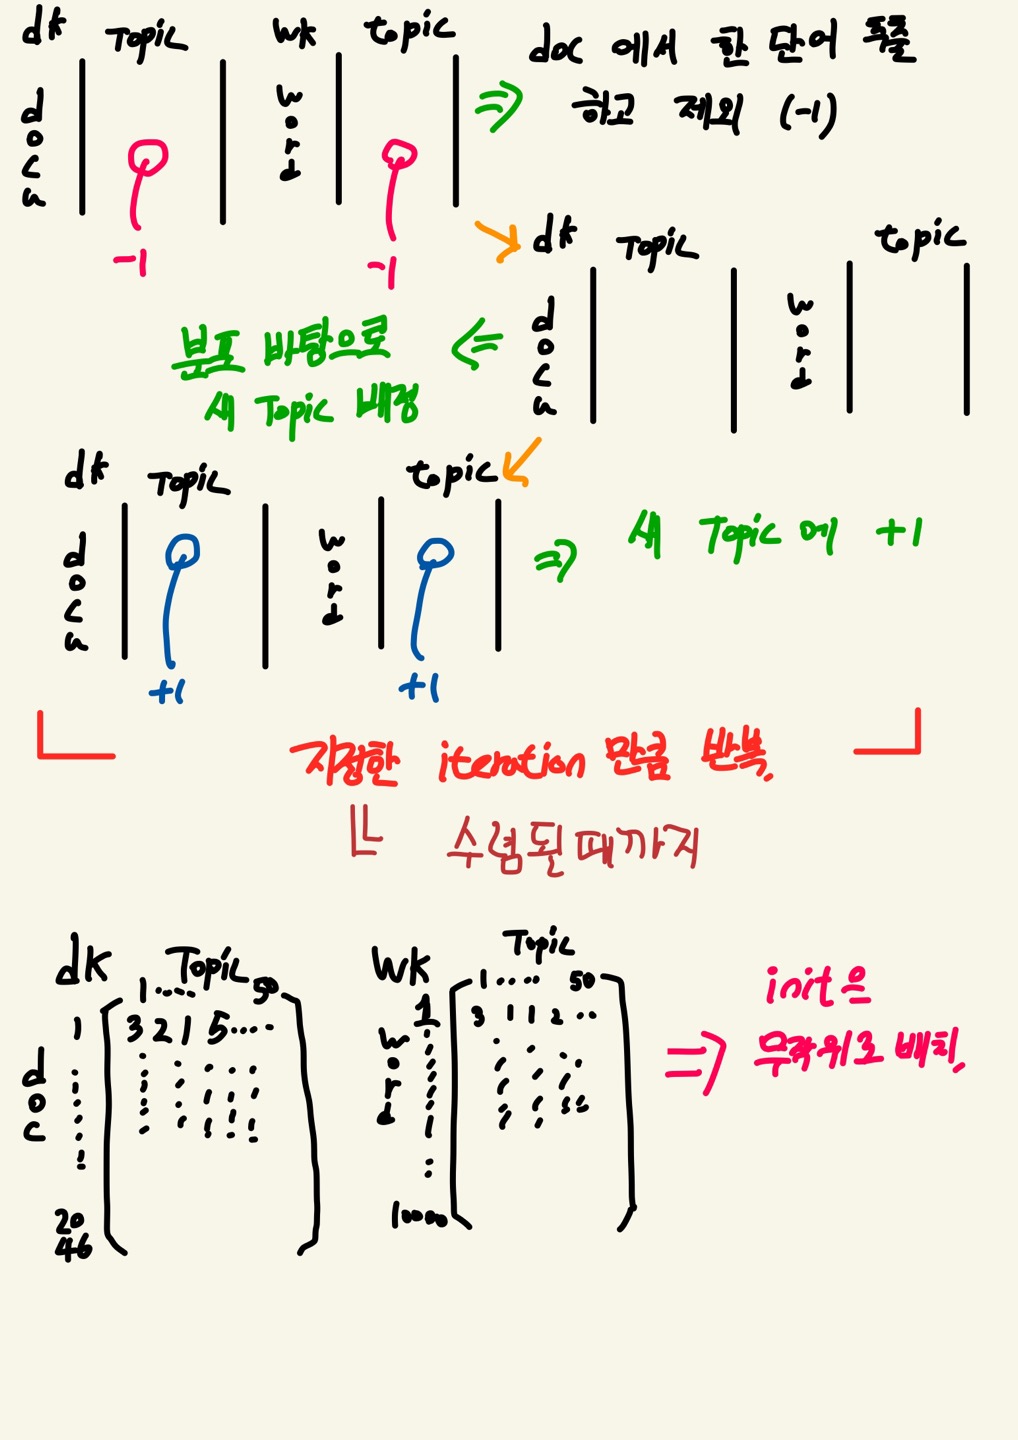 dk Topic wk topic
docu word
doc 에서 한 단어 추출
하고 제외 (-1)
-1 -1
dk Topic topic
docu word
분포 바탕으로
새 Topic 배정
dk Topic topic
docu word
새 Topic 에 +1
+1 +1
지정한 iteration 만큼 반복.
수렴될때까지
dk Topic
1 ..... 50
1 3 2 1 5 ....
doc
2046
wk Topic
1 .... 50
1 3 1 1 2 ..
word
10000
init은
무작위로 배치.